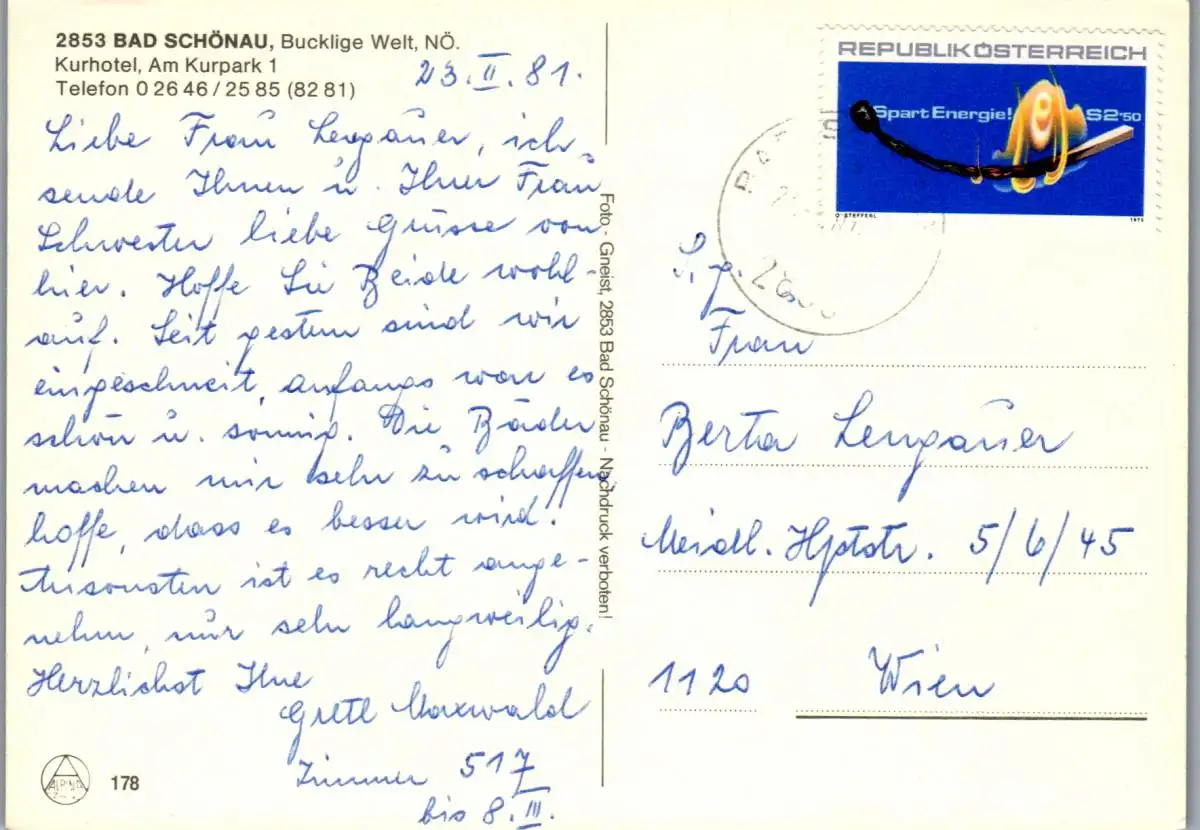 2853 BAD SCHÖNAU, Bucklige Welt, NÖ.
Kurhotel, Am Kurpark 1
Telefon 0 26 46 / 25 85 (82 81)
23. II. 81.
Liebe Frau Lengauer, ich
sende Ihnen u. Ihrer Frau
Schwester liebe Grüsse von
hier. Hoffe Sie Beide wohl-
auf. Seit gestern sind wir
eingeschneit, anfangs war es
schön u. sonnig. Die Bäder
machen mir sehr zu schaffen
hoffe, dass es besser wird!
Ansonsten ist es recht ange-
nehm, nur sehr langweilig.
Herzlichst Ihre
Gretl Maxwald
Zimmer 517
bis 8. III.
ALPINA
178
Foto - Gneist, 2853 Bad Schönau - Nachdruck verboten!
REPUBLIK ÖSTERREICH
Spart Energie! S2·50
O. STEFFERL 1975
S. g.
Frau
Berta Lengauer
Meidl. Hptstr. 5/6/45
1120 Wien